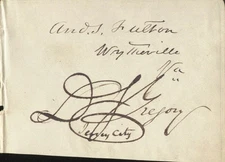 And. S. Fulton
Wytheville
Va
D. S. Gregory
Jersey City